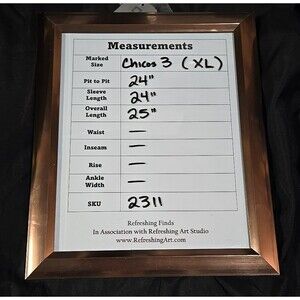 Measurements
Marked Size Chicos 3 (XL)
Pit to Pit 24"
Sleeve Length 24"
Overall Length 25"
Waist —
Inseam —
Rise —
Ankle Width —
SKU 2311
Refreshing Finds
In Association with Refreshing Art Studio
www.RefreshingArt.com